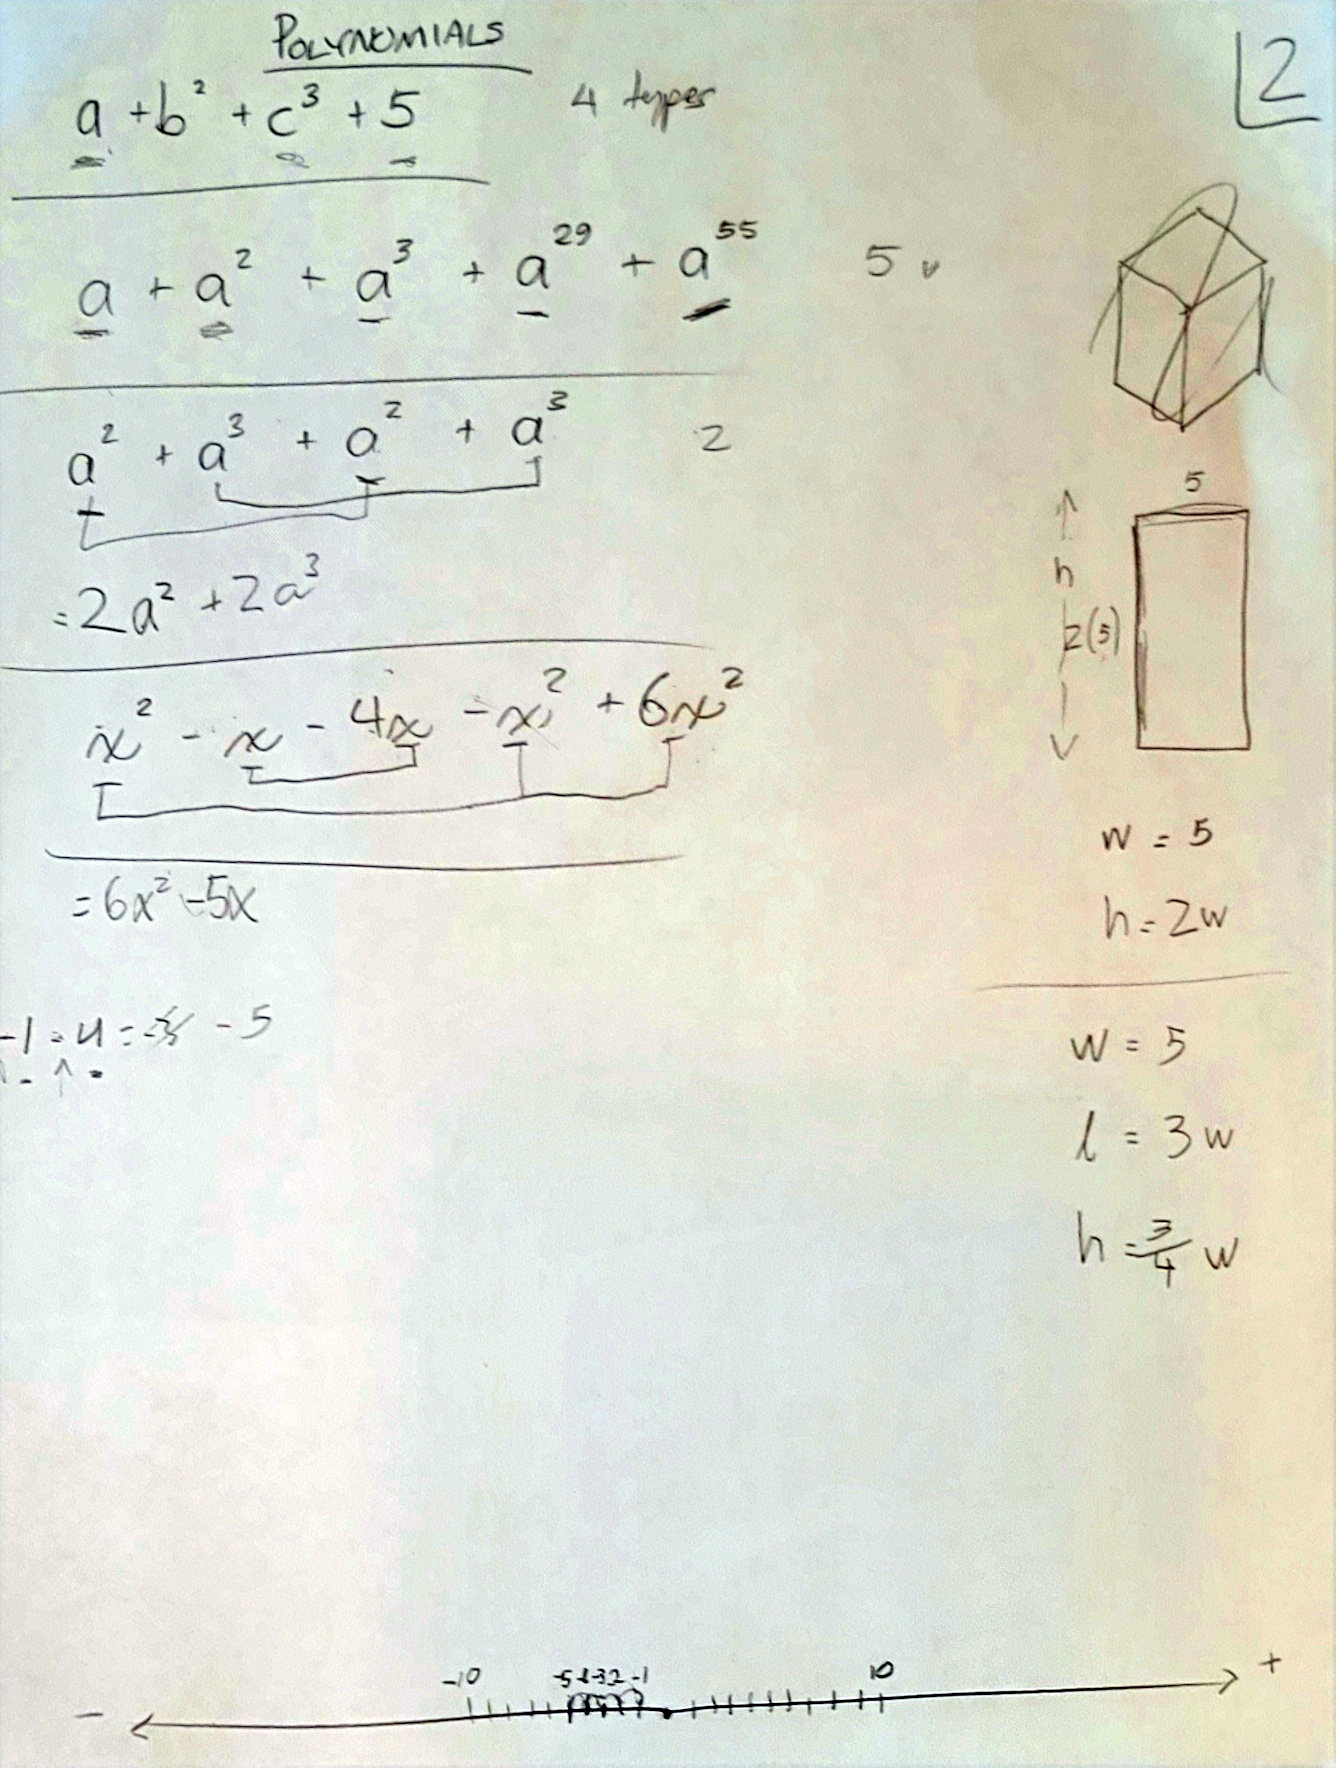 POLYNOMIALS
2
a + b² + c³ + 5 4 types
a + a² + a³ + a²⁹ + a⁵⁵ 5
a² + a³ + a² + a³ 2
= 2a² + 2a³
x² - x - 4x - x² + 6x²
= 6x² - 5x
-1 - 4 = - 5
5
h
2(5)
w = 5
h = 2w
w = 5
l = 3w
h = 3/4 w
-10 -5 -4 -3 2 -1 10 +
-